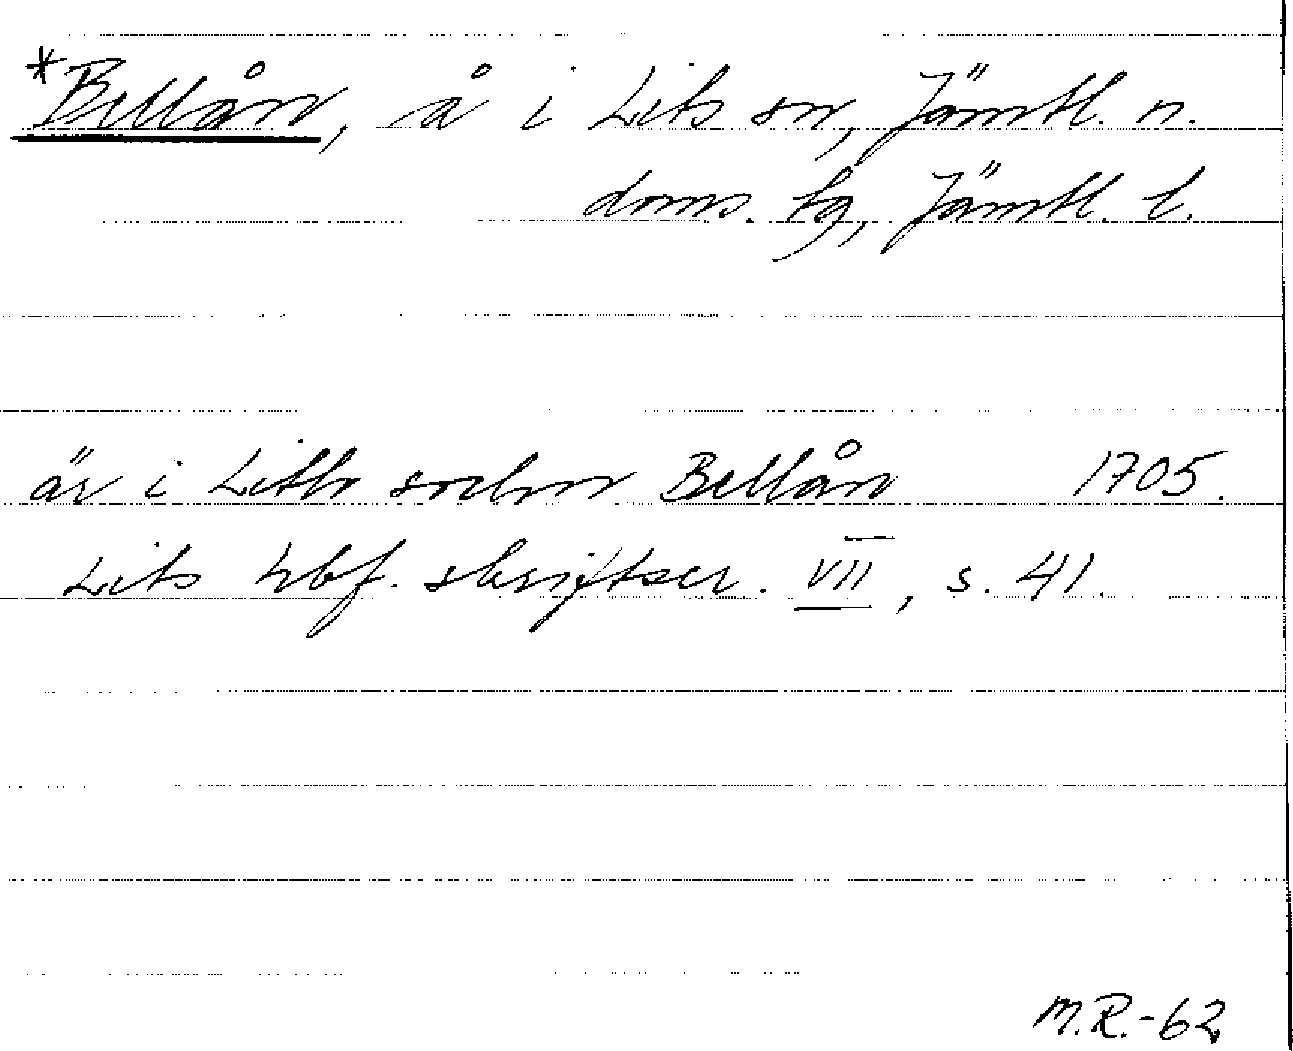 *Bellån, å i Lits sn, Jämtl. n.
doms. tg, Jämtl. l.
är i Liths sochn Bellån 1705.
Lits hbf. skriftser. VII, s. 41.
M.R.-62